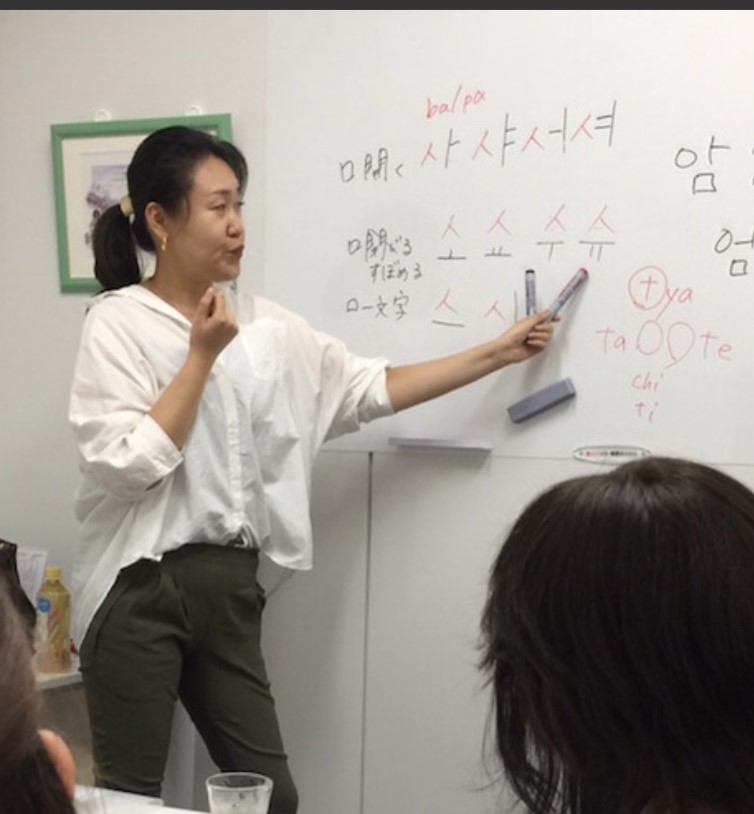 ba/pa
口開く 사 샤 서 셔
口閉じる 소 쇼 수 슈
すぼめる
口一文字 스 시
암
엄
tya
ta te
chi
ti